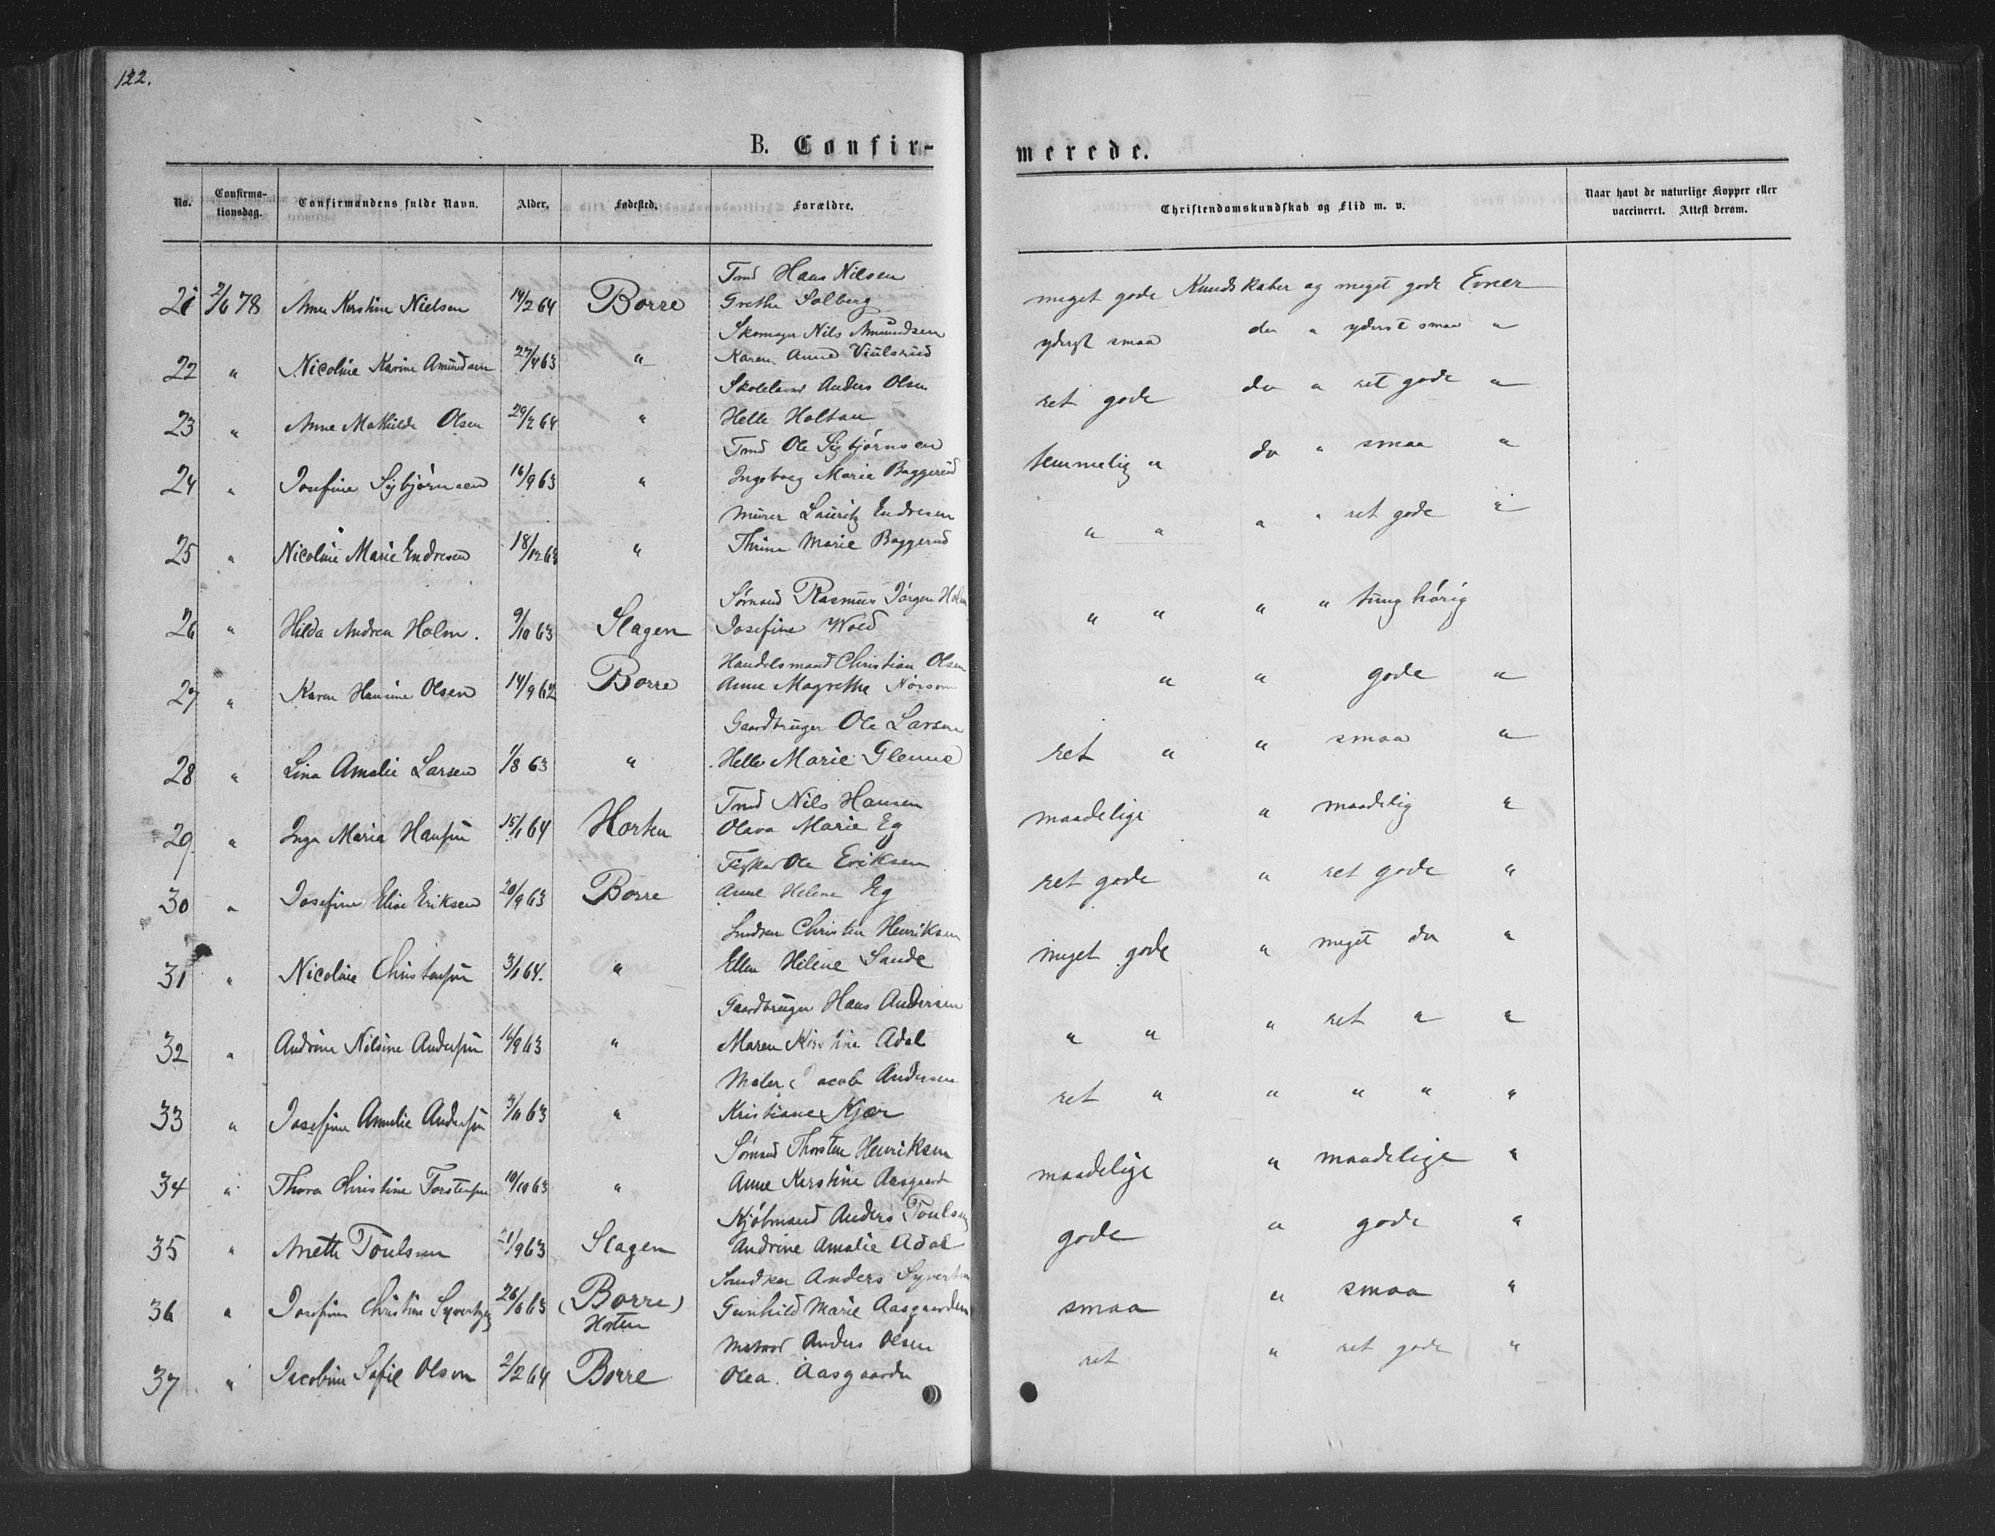 122.
B. Confir-
merede.
No. Confirma-tionsdag. Confirmandens fulde Navn. Alder. Fødested. Forældre. Christendomskundskab og Flid m. v. Naar havt de naturlige Kopper eller vaccineret. Attest derom.
Tmd Hans Nilsen
21 2/6 78 Anne Kirstine Nielsen 14/2 64 Borre Grethe Solberg meget gode Kundskaber og meget gode Evner
Skomager Nils Amundsen
22 " Nicoline Karine Amundsen 27/4 63 " Karen Anne Viulsrud yderst smaa do " yderst smaa "
Skolelærer Anders Olsen
23 " Anne Mathilde Olsen 29/2 64 " Helle Holtan ret gode do " ret gode "
Tmd Ole Sigbjørnsen
24 " Josefine Sigbjørnsen 16/9 63 " Ingeborg Maria Baggerud temmelig " do " smaa "
Murer Lauritz Endresen
25 " Nicoline Marie Endresen 18/12 63 " Thrine Marie Baggerud " " " " ret gode "
Sømand Rasmus Jørgen Holm
26 " Hilda Andrea Holm. 9/10 63 Slagen Josefine Wold " " " " tunghørig
Handelsmand Christian Olsen
27 " Karen Hansine Olsen 14/9 62 Borre Anne Magrethe " " gode "
Gaardbruger Ole Larsen
28 " Lina Amalie Larsen 1/8 63 " Helle Marie Glenne ret " " smaa "
Tmd Nils Hansen
29 " Inga Maria Hansen 15/1 64 Horten Olava Marie Eg maadelige " maadelig "
Fisker Ole Eriksen
30 " Josefine Elise Eriksen 20/9 63 Borre Anne Helene Eg ret gode " ret gode "
Snedker Christen Henriksen
31 " Nicoline Christensen 3/1 64. " Ellen Helene Sande meget gode " meget do "
Gaardbruger Hans Andersen
32 " Andrine Nilsine Andersen 16/9 63 " Maren Kirstine Adal " " " ret " "
Maler Jacob Andersen
33 " Josefine Amalie Andersen 3/11 63 " Kristiane Kjær ret " " " " "
Sømand Thorsten Henriksen
34 " Thora Christine Torstensen 10/10 63 " Anne Kirstine Aasgaard maadelige " maadelige "
Kjøbmand Anders Poulsen
35 " Anette Poulsen 21/9 63 Slagen Andrine Amalie Adal gode " gode "
Snedker Anders Syvertsen
36 " Josefine Christine Syvertsen 26/6 63 (Borre) Gunhild Marie Aasgaarden smaa " smaa "
Horten
Anders Olsen
37 " Jacobine Sofie Olsen 2/2 64 Borre Olea Aasgaarden ret " ret gode "